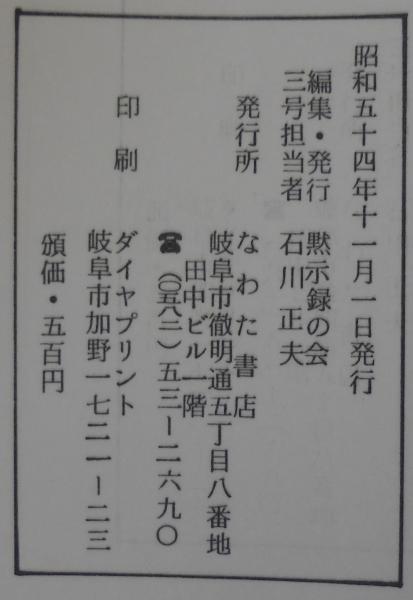 昭和五十四年十一月一日発行
編集・発行　黙示録の会
三号担当者　石川正夫
発行所　なわた書店
岐阜市徹明通五丁目八番地
田中ビル一階
☎（〇五八二）五三ー二六九〇
印刷　ダイヤプリント
岐阜市加野一七二一ー二三
頒価・五百円